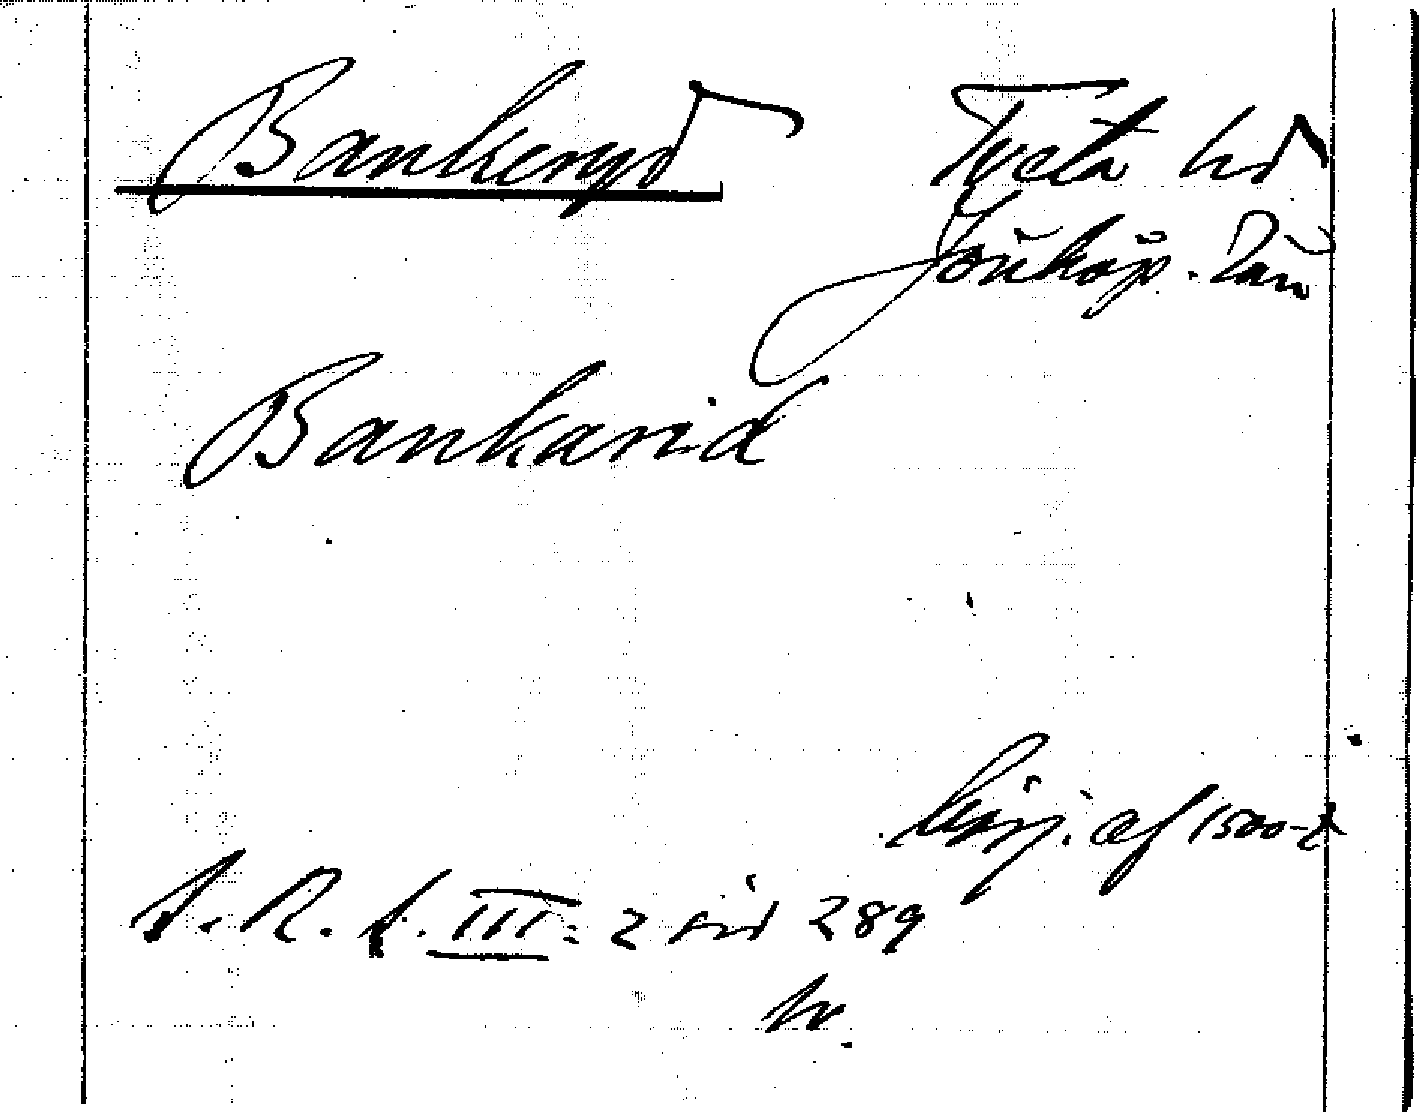 Bankeryd Tveta hd
Jönköp. Län
Bankarid
börj. af 1500-t
S. R. A. III: 2 sid 289
hr.